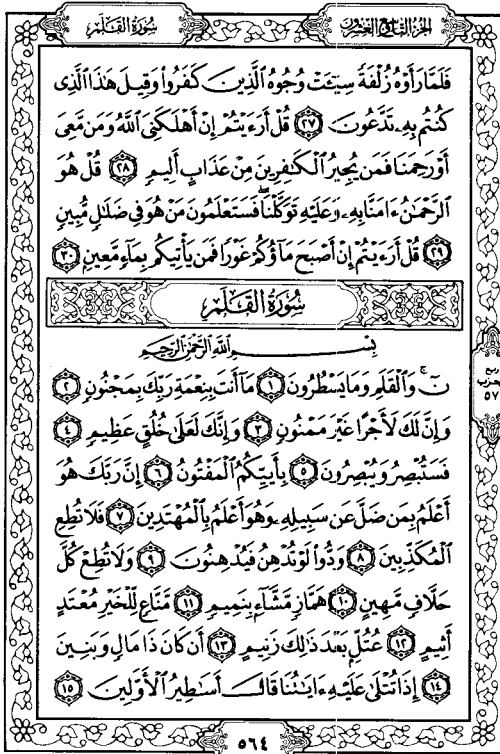 سُورَةُ القَلَمِ
الجُزءُ التَّاسِعُ وَالعِشْرُونَ
فَلَمَّا رَأَوْهُ زُلْفَةً سِيٓـَٔتْ وُجُوهُ ٱلَّذِينَ كَفَرُوا۟ وَقِيلَ هَٰذَا ٱلَّذِى
كُنتُم بِهِۦ تَدَّعُونَ ٢٧ قُلْ أَرَءَيْتُمْ إِنْ أَهْلَكَنِىَ ٱللَّهُ وَمَن مَّعِىَ
أَوْ رَحِمَنَا فَمَن يُجِيرُ ٱلْكَٰفِرِينَ مِنْ عَذَابٍ أَلِيمٍ ٢٨ قُلْ هُوَ
ٱلرَّحْمَٰنُ ءَامَنَّا بِهِۦ وَعَلَيْهِ تَوَكَّلْنَا ۖ فَسَتَعْلَمُونَ مَنْ هُوَ فِى ضَلَٰلٍ مُّبِينٍ
٢٩ قُلْ أَرَءَيْتُمْ إِنْ أَصْبَحَ مَآؤُكُمْ غَوْرًا فَمَن يَأْتِيكُم بِمَآءٍ مَّعِينٍ ٣٠
سُورَةُ القَلَمِ
بِسْمِ ٱللَّهِ ٱلرَّحْمَٰنِ ٱلرَّحِيمِ
نٓ ۚ وَٱلْقَلَمِ وَمَا يَسْطُرُونَ ١ مَآ أَنتَ بِنِعْمَةِ رَبِّكَ بِمَجْنُونٍ ٢
وَإِنَّ لَكَ لَأَجْرًا غَيْرَ مَمْنُونٍ ٣ وَإِنَّكَ لَعَلَىٰ خُلُقٍ عَظِيمٍ ٤
فَسَتُبْصِرُ وَيُبْصِرُونَ ٥ بِأَييِّكُمُ ٱلْمَفْتُونُ ٦ إِنَّ رَبَّكَ هُوَ
أَعْلَمُ بِمَن ضَلَّ عَن سَبِيلِهِۦ وَهُوَ أَعْلَمُ بِٱلْمُهْتَدِينَ ٧ فَلَا تُطِعِ
ٱلْمُكَذِّبِينَ ٨ وَدُّوا۟ لَوْ تُدْهِنُ فَيُدْهِنُونَ ٩ وَلَا تُطِعْ كُلَّ
حَلَّافٍ مَّهِينٍ ١٠ هَمَّازٍ مَّشَّآءٍۭ بِنَمِيمٍ ١١ مَّنَّاعٍ لِّلْخَيْرِ مُعْتَدٍ
أَثِيمٍ ١٢ عُتُلٍّۭ بَعْدَ ذَٰلِكَ زَنِيمٍ ١٣ أَن كَانَ ذَا مَالٍ وَبَنِينَ
١٤ إِذَا تُتْلَىٰ عَلَيْهِ ءَايَٰتُنَا قَالَ أَسَٰطِيرُ ٱلْأَوَّلِينَ ١٥
ربع
حزب
٥٧
٥٦٤